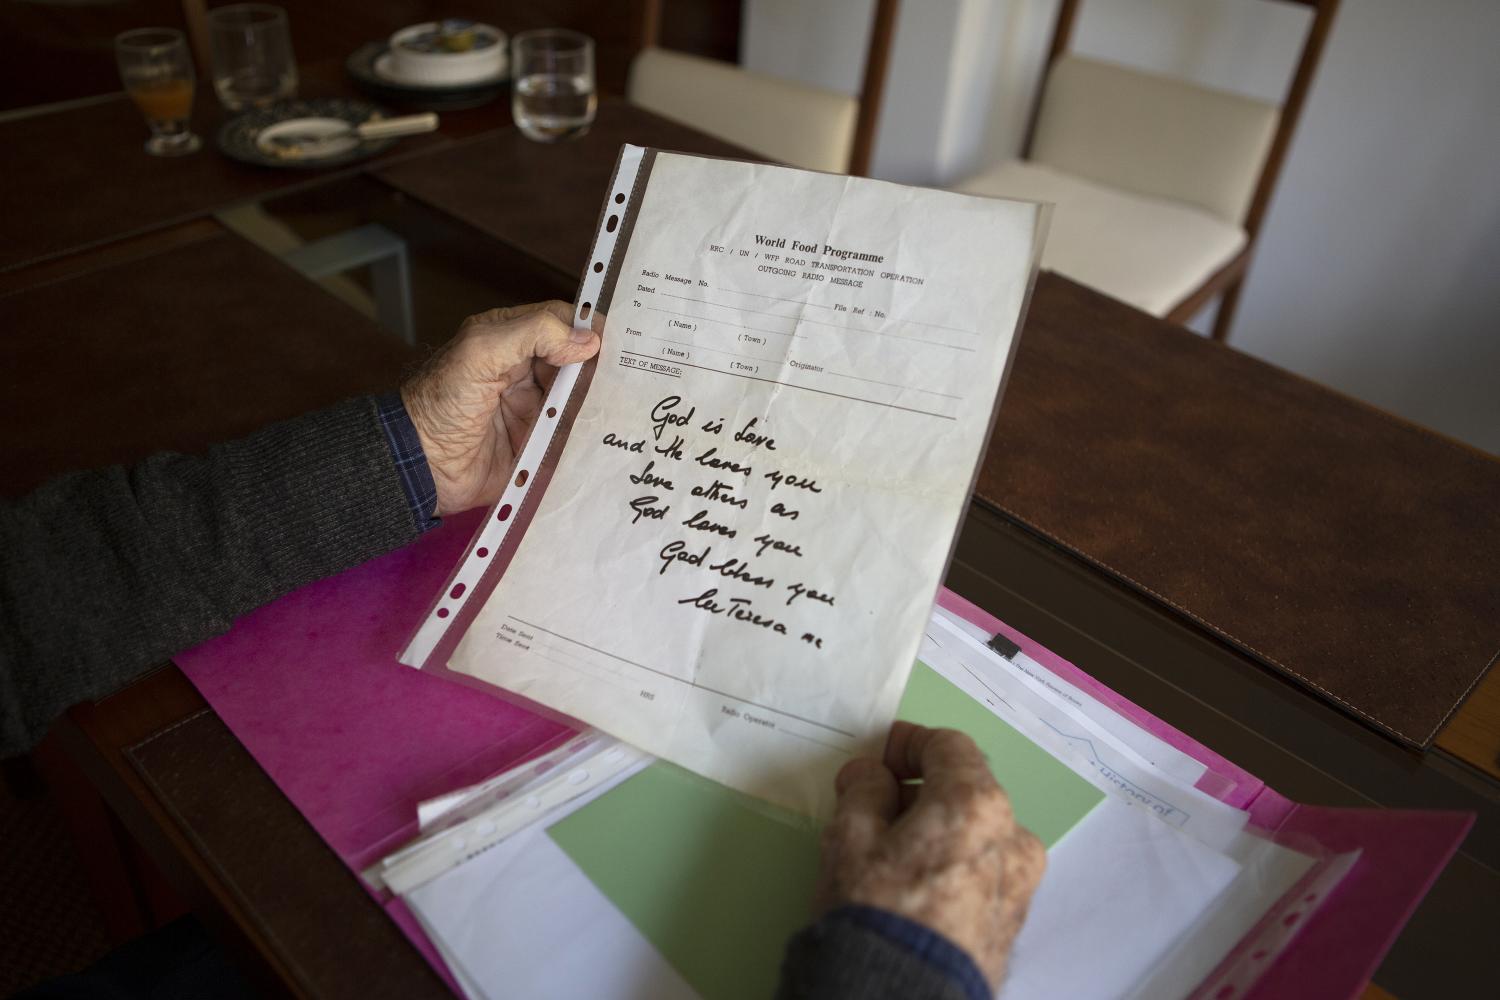 World Food Programme
RRC / UN / WFP ROAD TRANSPORTATION OPERATION
OUTGOING RADIO MESSAGE
Radio Message No.
File Ref : No.
Dated
To
( Name ) ( Town )
From
( Name ) ( Town ) Originator
TEXT OF MESSAGE:
God is Love
and He loves you
Love others as
God loves you
God bless you
Teresa mc
Date Sent
Time Sent
HRS
Radio Operator
The New York Review of Books
History of